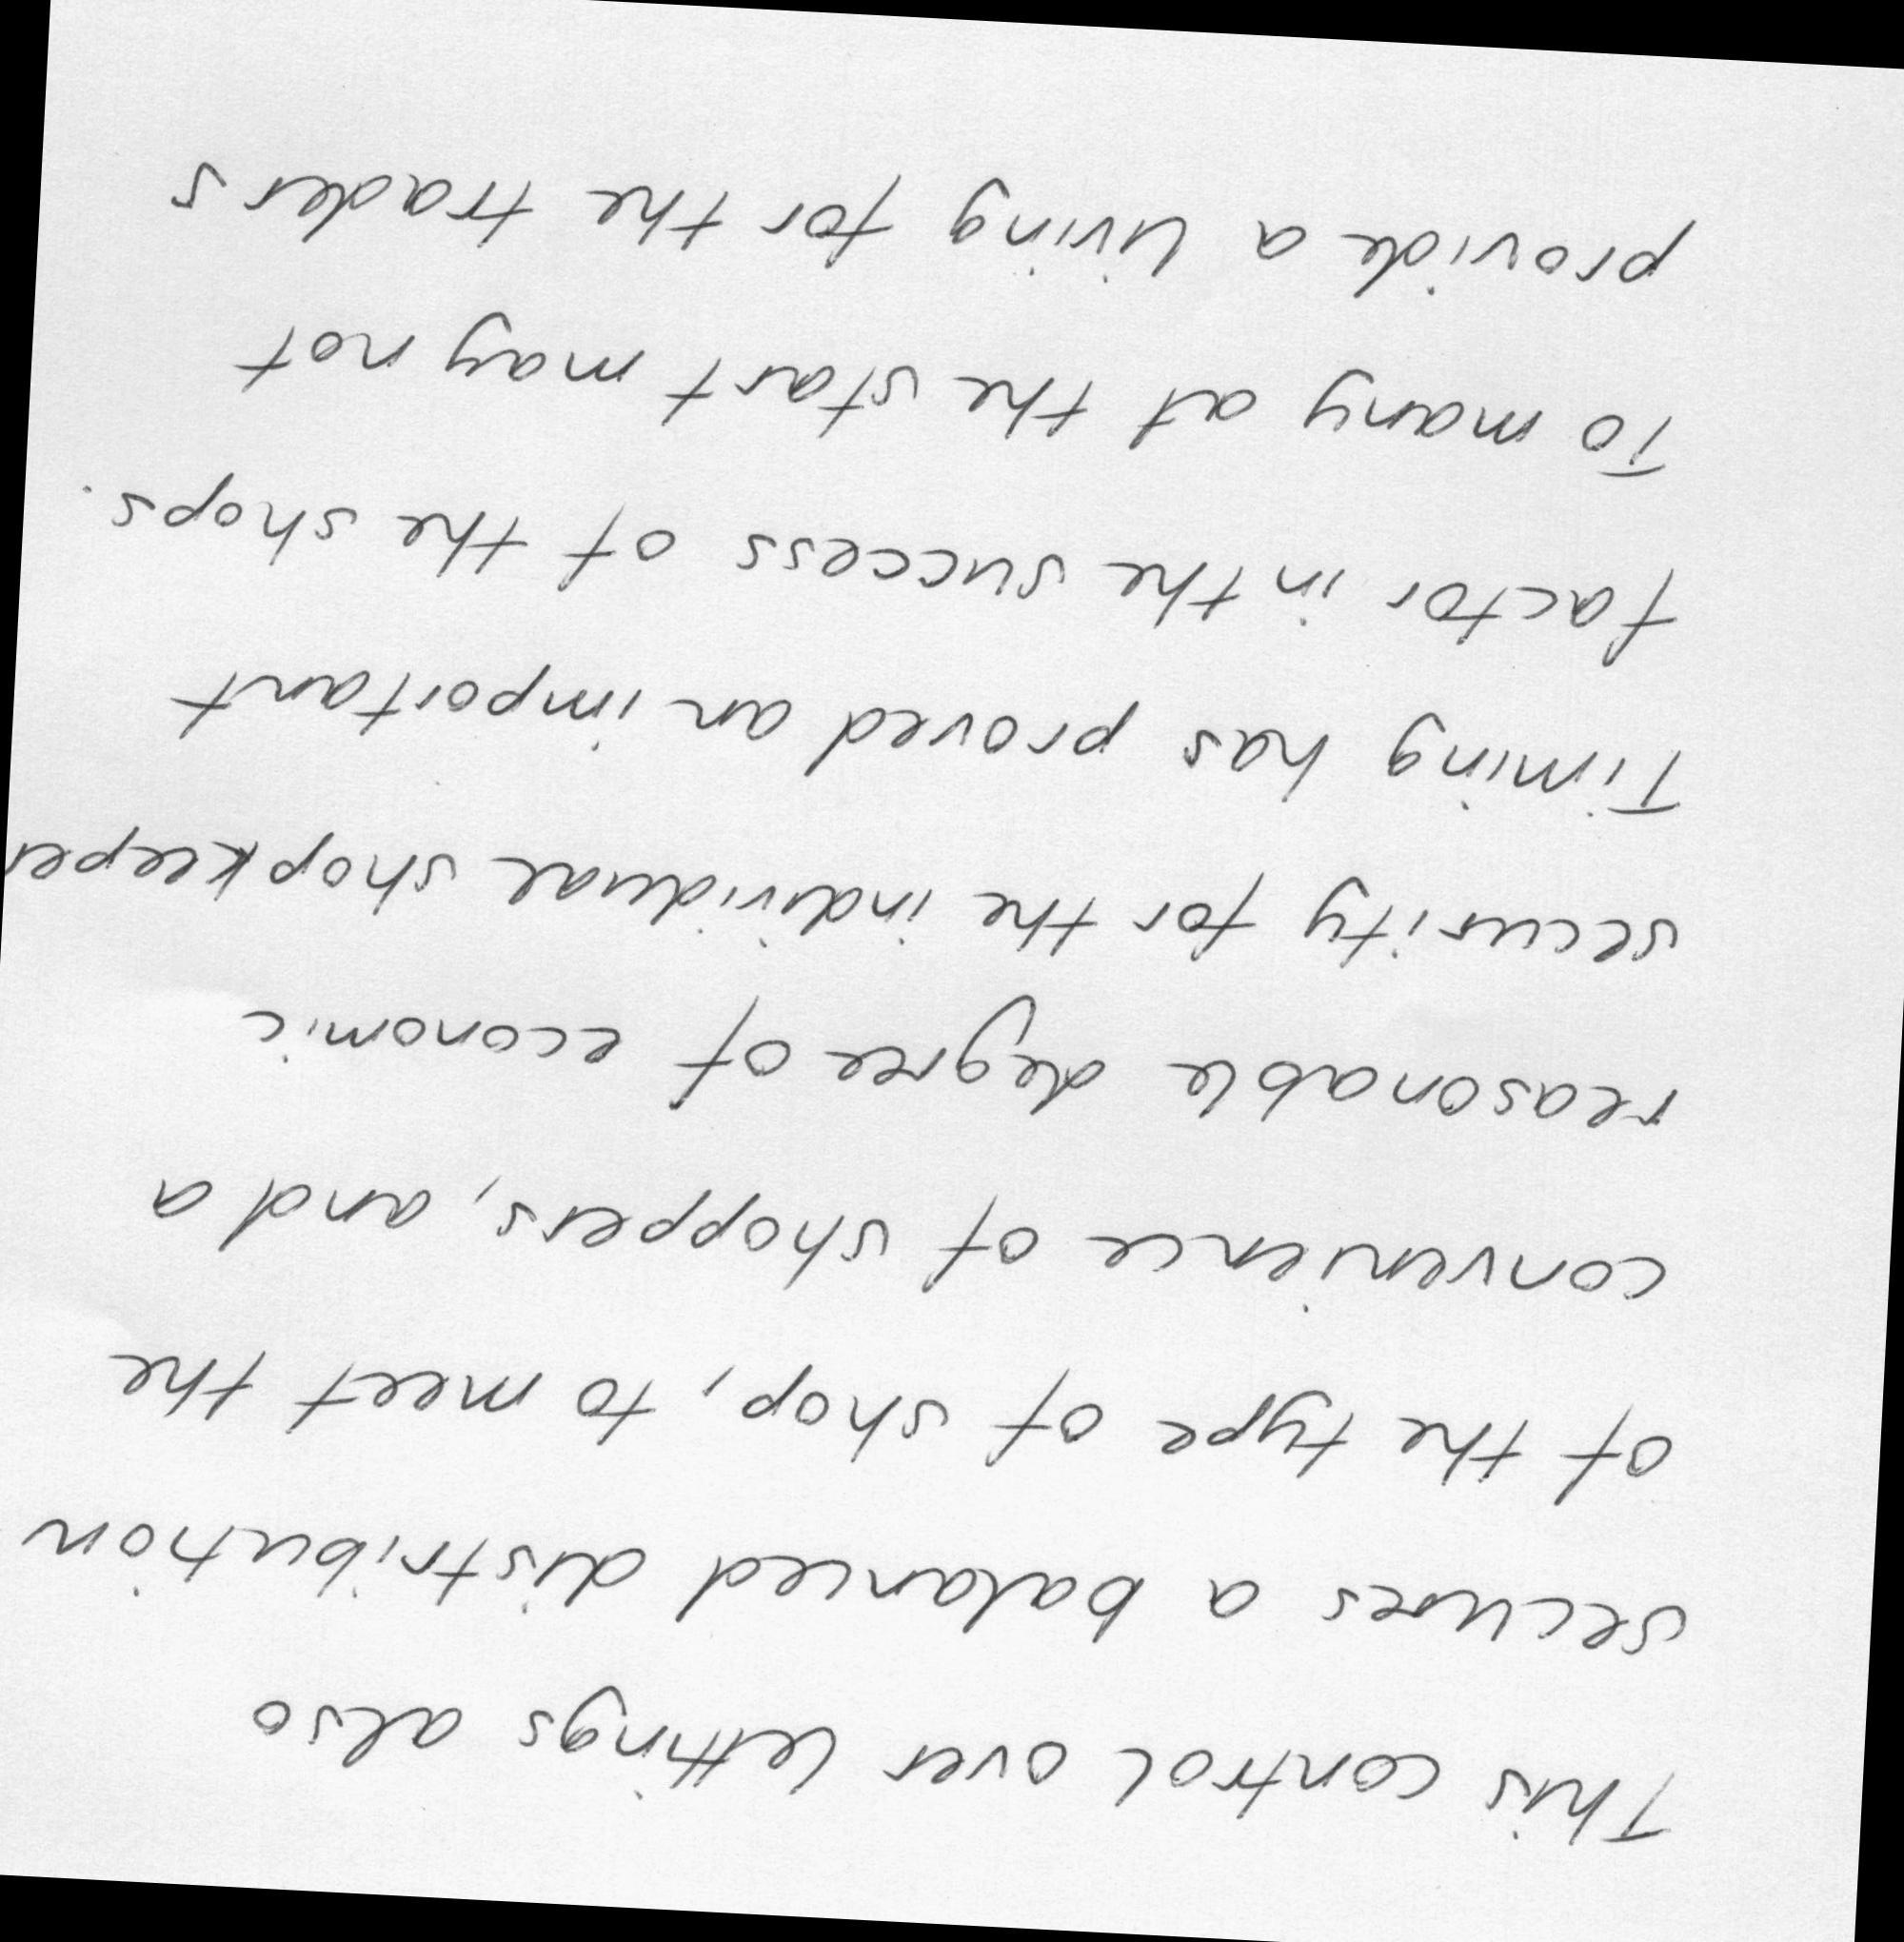 This control over lettings also
secures a balanced distribution
of the type of shop, to meet the
convenience of shoppers, and a
reasonable degree of economic
security for the individual shopkeeper
Timing has proved an important
factor in the success of the shops.
To many at the start may not
provide a living for the traders